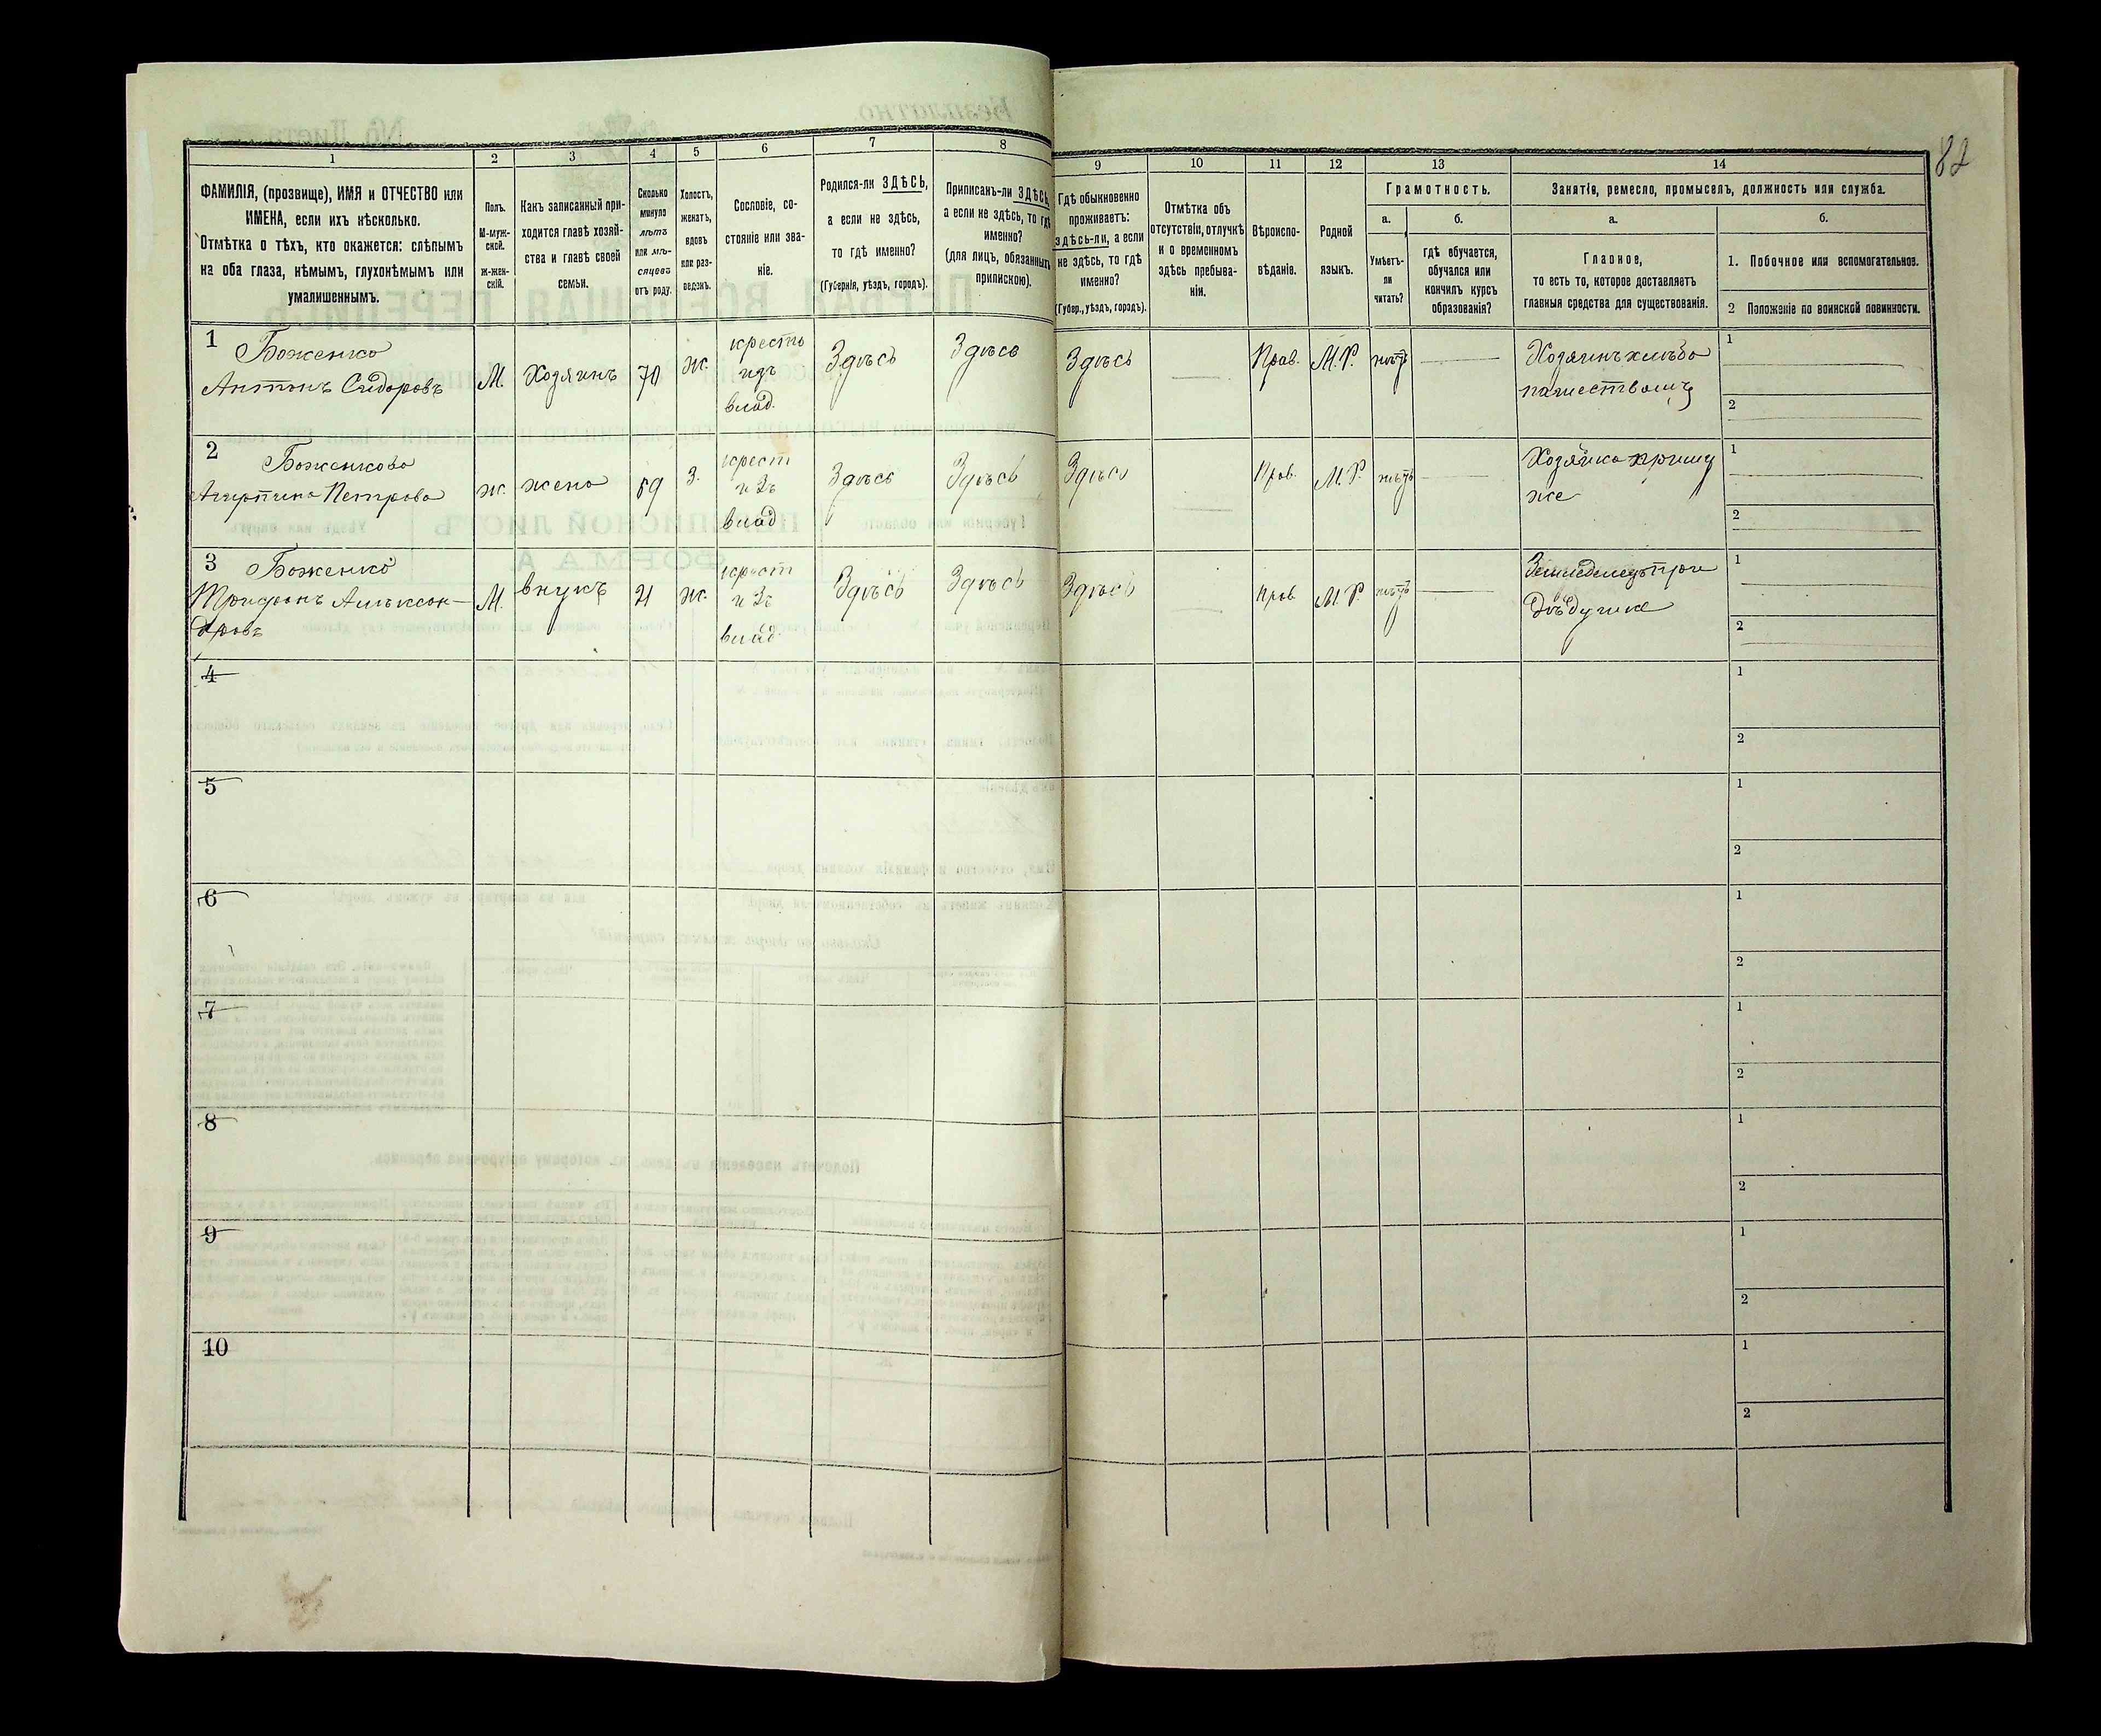 82
1 2 3 4 5 6 7 8 9 10 11 12 13 14
ФАМИЛІЯ, (прозвище), ИМЯ и ОТЧЕСТВО или
ИМЕНА, если ихъ нѣсколько.
Отмѣтка о тѣхъ, кто окажется: слѣпымъ
на оба глаза, нѣмымъ, глухонѣмымъ или
умалишеннымъ.
Полъ.
М-муж-
ской.
ж-жен-
скій.
Какъ записанный при-
ходится главѣ хозяй-
ства и главѣ своей
семьи.
Сколько
минуло
лѣтъ
или мѣ-
сяцевъ
отъ роду.
Холостъ,
женатъ,
вдовъ
или раз-
веденъ.
Сословіе, со-
стояніе или зва-
ніе.
Родился-ли ЗДѢСЬ,
а если не здѣсь,
то гдѣ именно?
(Губернія, уѣздъ, городъ).
Приписанъ-ли ЗДѢСЬ,
а если не здѣсь, то гдѣ
именно?
(для лицъ, обязанныхъ
припискою).
Гдѣ обыкновенно
проживаетъ:
здѣсь-ли, а если
не здѣсь, то гдѣ
именно?
(Губер., уѣздъ, городъ).
Отмѣтка объ
отсутствіи, отлучкѣ
и о временномъ
здѣсь пребыва-
ніи.
Вѣроиспо-
вѣданіе.
Родной
языкъ.
Грамотность.
а.
Умѣетъ-
ли
читать?
б.
гдѣ обучается,
обучался или
кончилъ курсъ
образованія?
Занятіе, ремесло, промыселъ, должность или служба.
а.
Главное,
то есть то, которое доставляетъ
главныя средства для существованія.
б.
1. Побочное или вспомогательное.
2 Положеніе по воинской повинности.
1
Боженко
Антонъ Сидоровъ
М.
Хозяинъ
70
ж.
кресть
изъ
влад.
Здѣсь
Здѣсь
Здѣсь
Прав.
М.Р.
нѣтъ
Хозяинъ хлѣбо
пашествомъ
1
2
2
Боженкова
Петрова
ж.
жена
З.
крест
изъ
влад
Здѣсь
Здѣсь
Здѣсь
Прав.
М.Р.
нѣтъ
Хозяйка при му
же
1
2
3
Боженко
Трифонъ Алѣксан-
дровъ
М.
внукъ
21
ж.
крест
изъ
влад.
Здѣсь
Здѣсь
Здѣсь
Прав
М.Р.
нѣтъ
Земледѣлецъ при
Дѣдушке
1
2
4
1
2
5
1
2
6
1
2
7
1
2
8
1
2
9
1
2
10
1
2